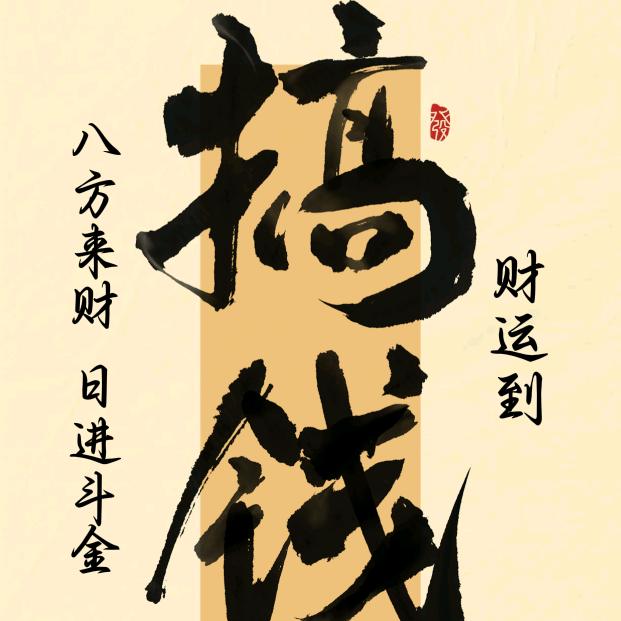 搞钱
發
财运到
八方来财 日进斗金